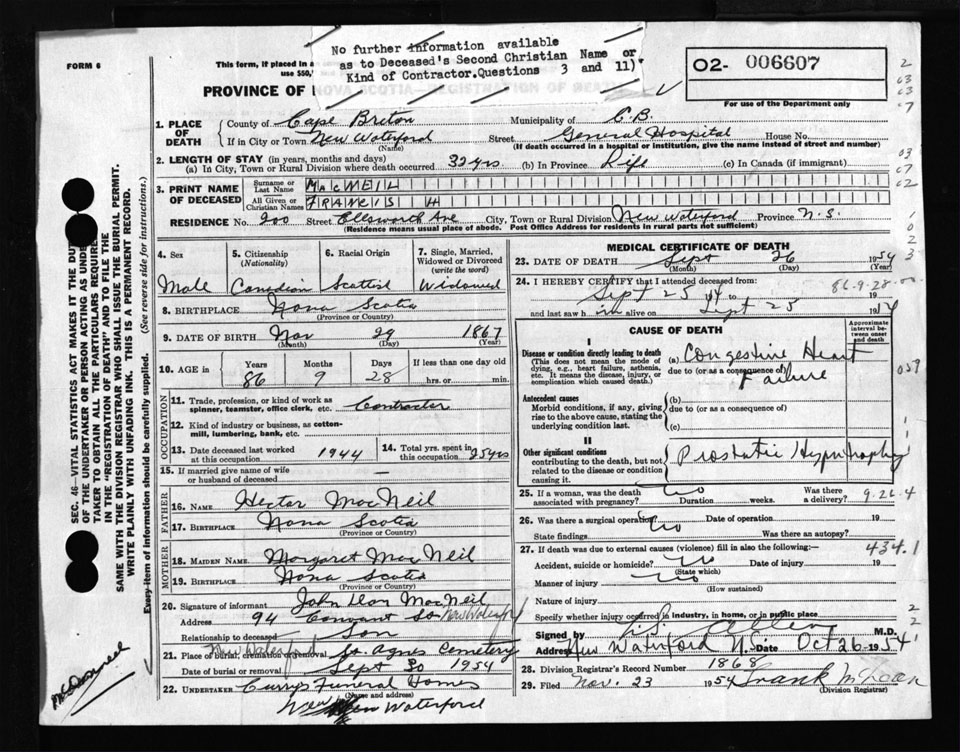 FORM 6
This form, if placed in a
use $50,
No further information available
as to Deceased's Second Christian Name or
Kind of Contractor. Questions 3 and 11)
PROVINCE OF
NOVA SCOTIA—REGISTRATION OF DEATH
O2- 006607
For use of the Department only
1. PLACE OF DEATH
County of Cape Breton Municipality of C.B.
If in City or Town New Waterford Street General Hospital House No.
(Name) (If death occurred in a hospital or institution, give the name instead of street and number)
2. LENGTH OF STAY (in years, months and days)
(a) In City, Town or Rural Division where death occurred 30 yrs. (b) In Province Life (c) In Canada (if immigrant)
3. PRINT NAME OF DECEASED
Surname or Last Name MACNEIL
All Given or Christian Names FRANCIS H
RESIDENCE No. 200 Street Ellsworth Ave City, Town or Rural Division New Waterford Province N.S.
(Residence means usual place of abode. Post Office Address for residents in rural parts not sufficient)
4. Sex
Male
5. Citizenship (Nationality)
Canadian
6. Racial Origin
Scottish
7. Single, Married, Widowed or Divorced (write the word)
Widowed
8. BIRTHPLACE Nova Scotia
(Province or Country)
9. DATE OF BIRTH Nov 29 1867
(Month) (Day) (Year)
10. AGE in Years Months Days If less than one day old
86 9 28 hrs. or min.
OCCUPATION
11. Trade, profession, or kind of work as spinner, teamster, office clerk, etc. Contractor
12. Kind of industry or business, as cotton-mill, lumbering, bank, etc.
13. Date deceased last worked at this occupation 1944
14. Total yrs. spent in this occupation 25 yrs
15. If married give name of wife or husband of deceased —
FATHER
16. NAME Hector MacNeil
17. BIRTHPLACE Nova Scotia
(Province or Country)
MOTHER
18. MAIDEN NAME Margaret MacNeil
19. BIRTHPLACE Nova Scotia
(Province or Country)
20. Signature of informant John Dan MacNeil
Address 94 Convent St New Waterford
Relationship to deceased Son
21. Place of burial, cremation or removal New Waterford St. Agnes Cemetery
Date of burial or removal Sept 30 1954
22. UNDERTAKER Currys Funeral Homes
(Name and address)
New Waterford
MEDICAL CERTIFICATE OF DEATH
23. DATE OF DEATH Sept 26 1954
(Month) (Day) (Year)
24. I HEREBY CERTIFY that I attended deceased from:
Sept 25 54 to 19
86-9-28
and last saw him alive on Sept 25 1954
CAUSE OF DEATH
Approximate interval between onset and death
I
Disease or condition directly leading to death
(This does not mean the mode of dying, e.g., heart failure, asthenia, etc. It means the disease, injury, or complication which caused death.)
(a) Congestive Heart Failure
due to (or as a consequence of)
Antecedent causes
Morbid conditions, if any, giving rise to the above cause, stating the underlying condition last.
(b)
due to (or as a consequence of)
(c)
II
Other significant conditions
contributing to the death, but not related to the disease or condition causing it.
Prostatic Hypertrophy
25. If a woman, was the death associated with pregnancy? No Duration weeks. Was there a delivery?
9-26-4
26. Was there a surgical operation? No Date of operation 19
State findings Was there an autopsy?
27. If death was due to external causes (violence) fill in also the following:—
434.1
Accident, suicide or homicide? No Date of injury 19
(State which)
Manner of injury No
(How sustained)
Nature of injury
Specify whether injury occurred in industry, in home, or in public place
Signed by M.D.
Address New Waterford N.S. Date Oct 26 1954
28. Division Registrar's Record Number 1868
29. Filed Nov. 23 1954
(Division Registrar)
SEC. 46—VITAL STATISTICS ACT MAKES IT THE DUTY
OF THE UNDERTAKER OR PERSON ACTING AS UNDER-
TAKER TO OBTAIN ALL THE PARTICULARS REQUIRED
IN THE "REGISTRATION OF DEATH" AND TO FILE THE
SAME WITH THE DIVISION REGISTRAR WHO SHALL ISSUE THE BURIAL PERMIT.
WRITE PLAINLY WITH UNFADING INK. THIS IS A PERMANENT RECORD.
Every item of information should be carefully supplied. (See reverse side for instructions.)